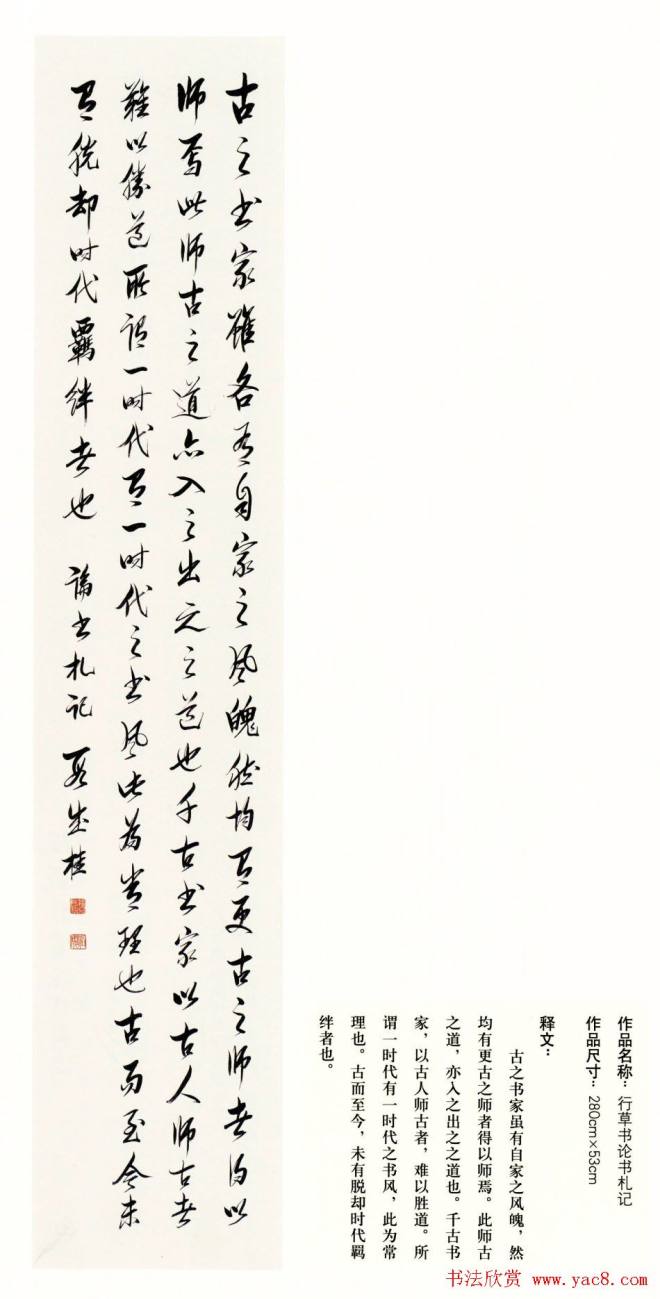 古之书家虽各有自家之风魄然均有更古之师者得以
师焉此师古之道亦入之出之之道也千古书家以古人师古者
难以胜道所谓一时代有一时代之书风此为常理也古而至今未
有脱却时代羁绊者也 论书札记 段成桂
作品名称：行草书论书札记
作品尺寸：280cm×53cm
释文：
古之书家虽有自家之风魄，然
均有更古之师者得以师焉。此师古
之道，亦入之出之之道也。千古书
家，以古人师古者，难以胜道。所
谓一时代有一时代之书风，此为常
理也。古而至今，未有脱却时代羁
绊者也。
书法欣赏 www.yac8.com